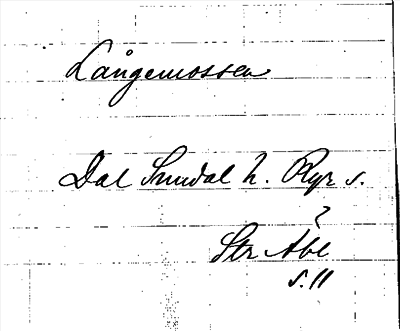 Långemossen
Dal Sundal h. Ryr s.
?
Str Åbl
s. 11